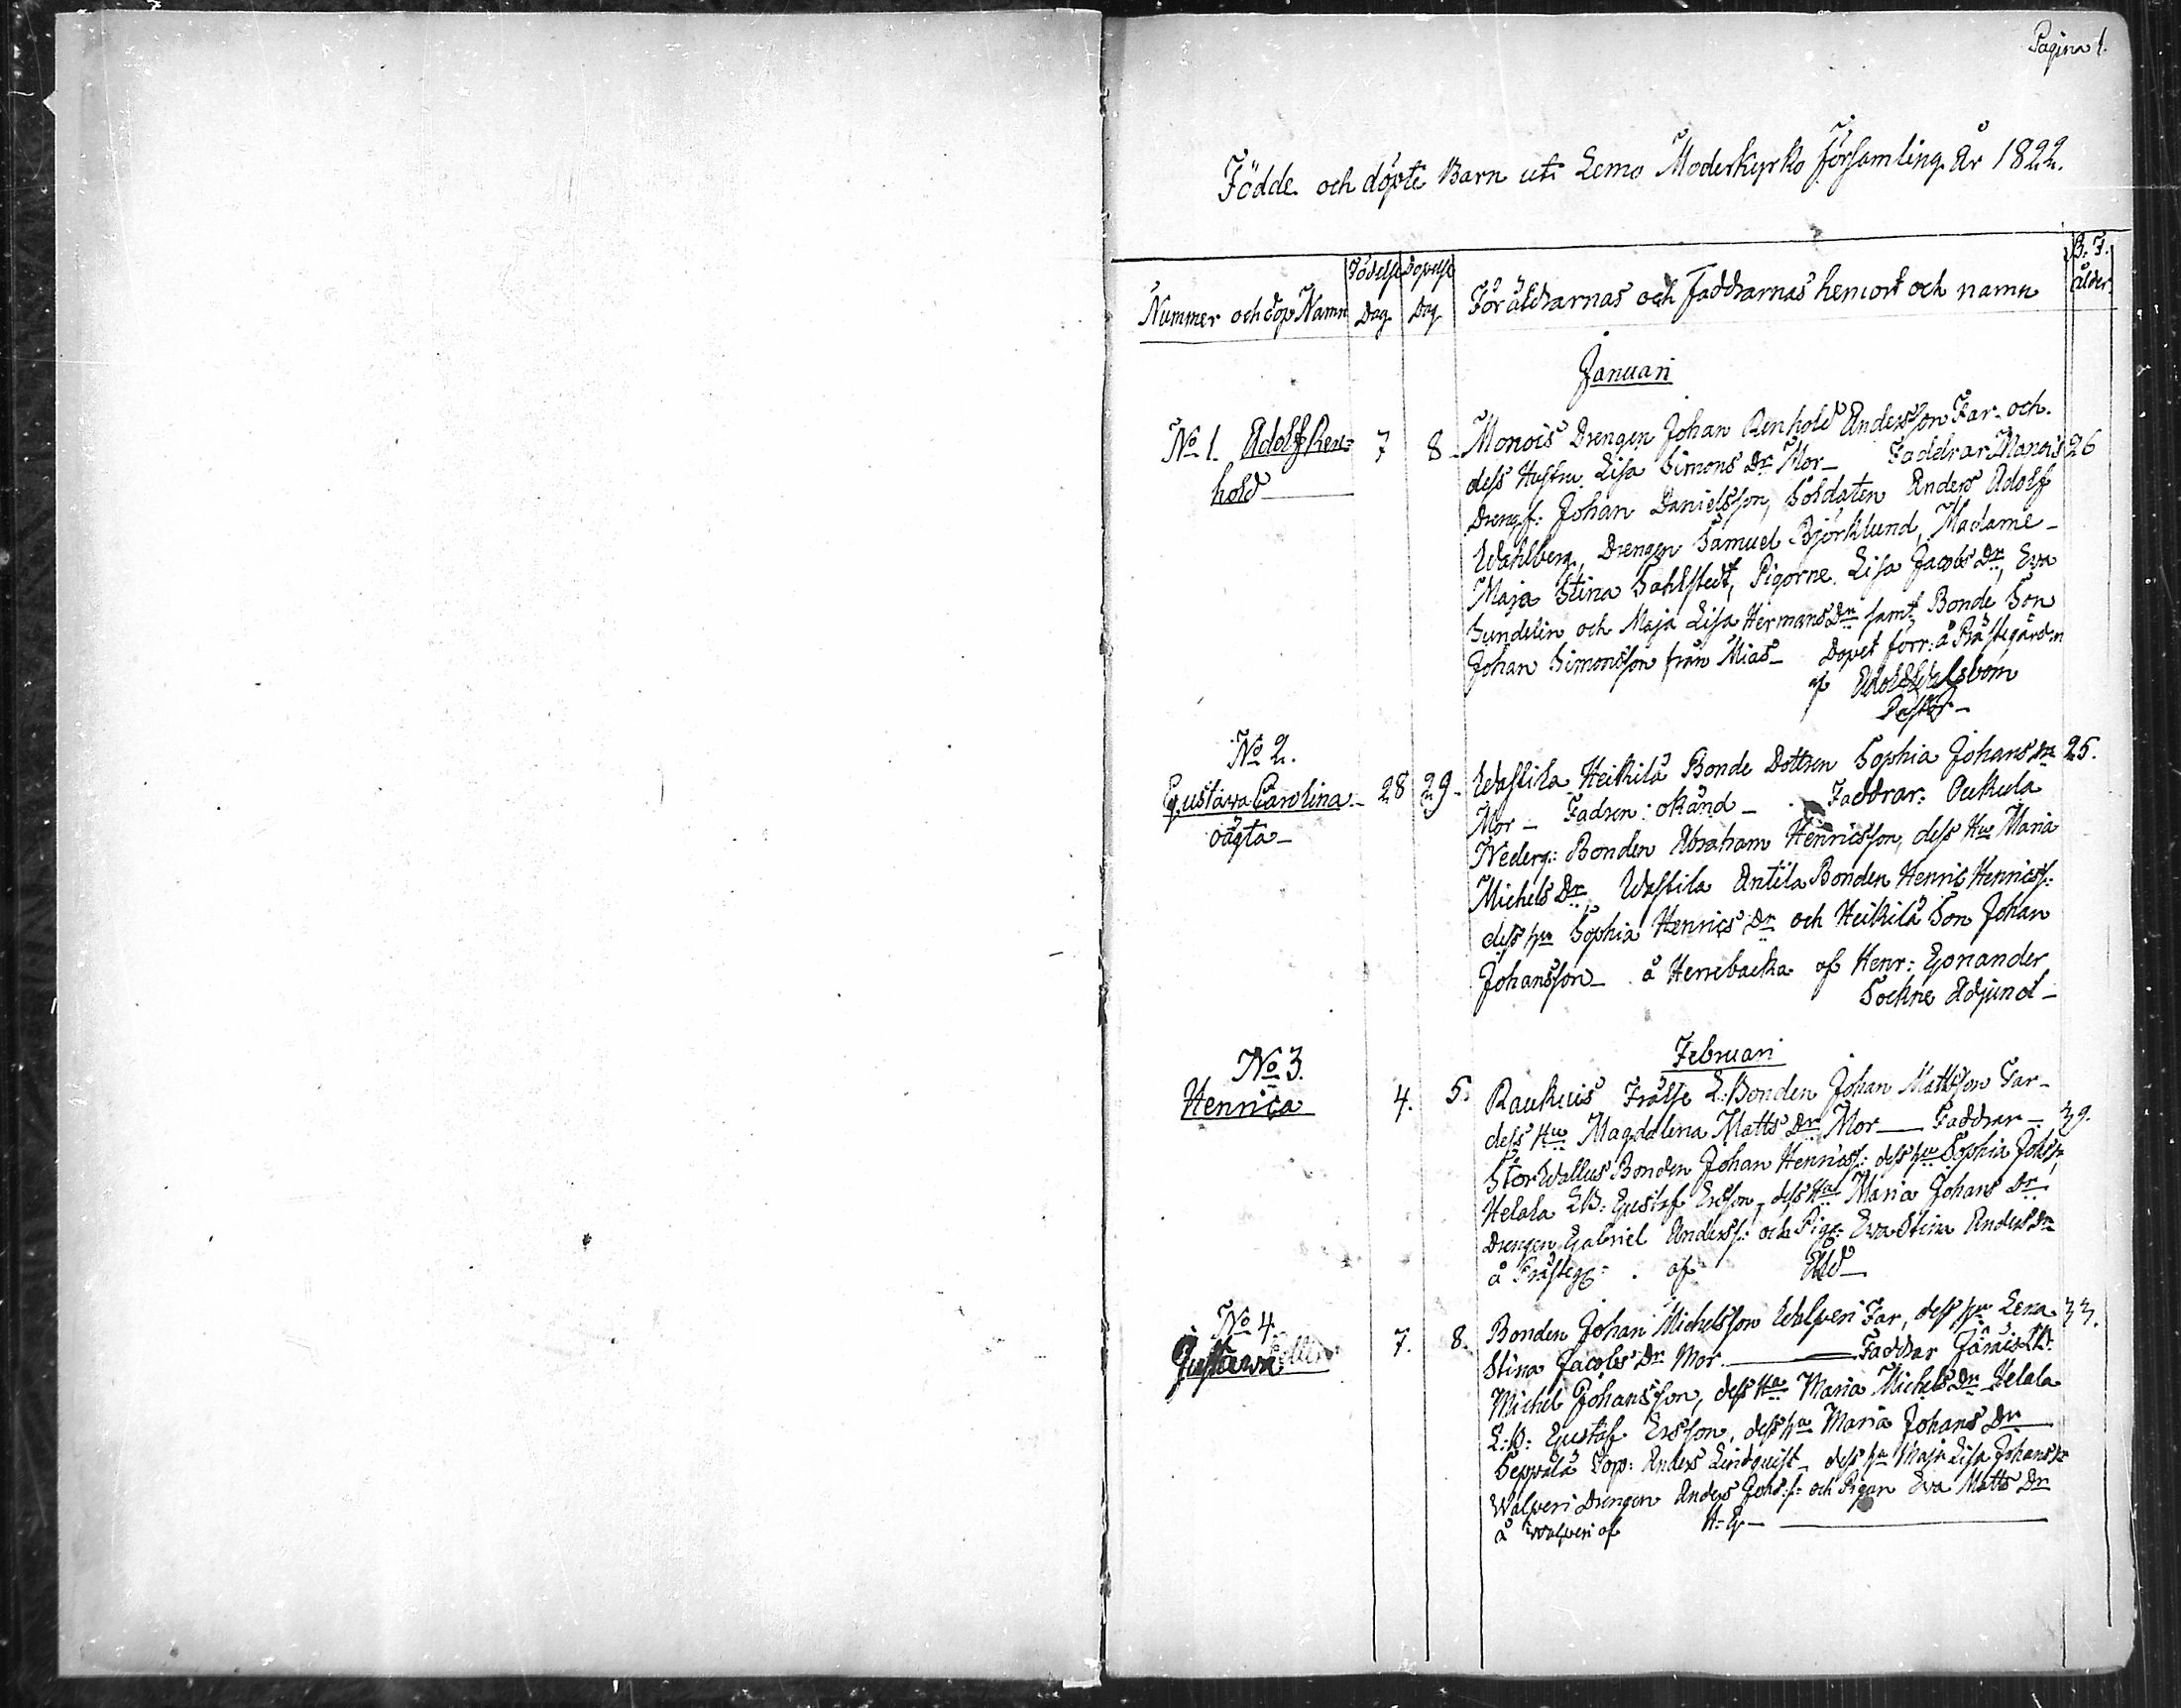 Pagina 1.
Födde och döpte Barn uti Lemo Moderkyrko församling År 1822.
Nummer och döp Namn
Födelse Dag
Döpelse Dag
Föräldrarnas och Faddrarnas hemort och namn
B. F. ålder.
Januari
No 1. Adolf Ren= 7 8 Monois Drengen Johan Renhold Andersson Far- och
hold dess Hustru Lisa Simons Dr Mor_ Faddrar Monois 26
Drengf: Johan Danielsson, Soldaten Anders Adolf
Wahlberg, Drengen Samuel Björklund, Madame
Maja Stina Sahlstedt, Pigorne Lisa Jacobs Dr, Eva
Sundelin och Maja Lisa Hermans Dr samt Bonde Son
Johan Simonsson från Mias_ Dopet förr: å Prästegården
af
Pastor_
No 2.
Gustava Carolina_ 28 29 Wastila Heikilä Bonde Dottren Sophia Johans Dr 25.
oägta_ Mor_ Fadren: okänd_ Faddrar: Oukula
Nederg: Bonden Abraham Henricsson, dess Hu Maria
Michels Dr, Wastila Antila Bonden Henric Henricss:
dess hu Sophia Henrics Dr och Heikilä Son Johan
Johansson_ å Herrebacka af Henr: Gonander
Sockne Adjunct_
Februari
No 3.
Henrica 4. 5. Raukuis Frälse L:Bonden Johan Mattsson Far_
dess Hu Magdalena Matts Dr Mor_ Faddrar_ 39.
Stor Wallus Bonden Johan Henricss: dess hu Sophia
Helala LB: Gustaf Ersson, dess Hu Maria Johans Dr
Drengen Gabriel Anderss: och Pig: Eva Stina Anders Dr
å Prästeg: af
No 4.
Gustawa 7. 8. Bonden Johan Michelsson Walperi Far, dess hu Lena 33.
Stina Jacobs Dr Mor_ Faddrar LB.
Michel Johansson, dess Hu Maria Michels Dr Helala
L:B: Gustaf Ersson, dess hu Maria Johans Dr
Seppälä Torp: Anders Lindquist_ dess hu Maja Lisa Johans Dr
Walperi Drengen Anders Johs:s: och Pigan Eva Matts Dr
å Walperi af H: G_